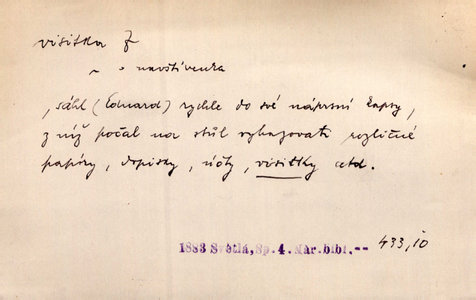 visitka F
~ = navštívenka
„sáhl (Eduard) rychle do své náprsní kapsy,
z níž počal na stůl vyhazovati rozličné
papíry, dopisky, účty, visitky atd.
1883 Světlá, Sp. 4. Nár. bibl. -- 433,10